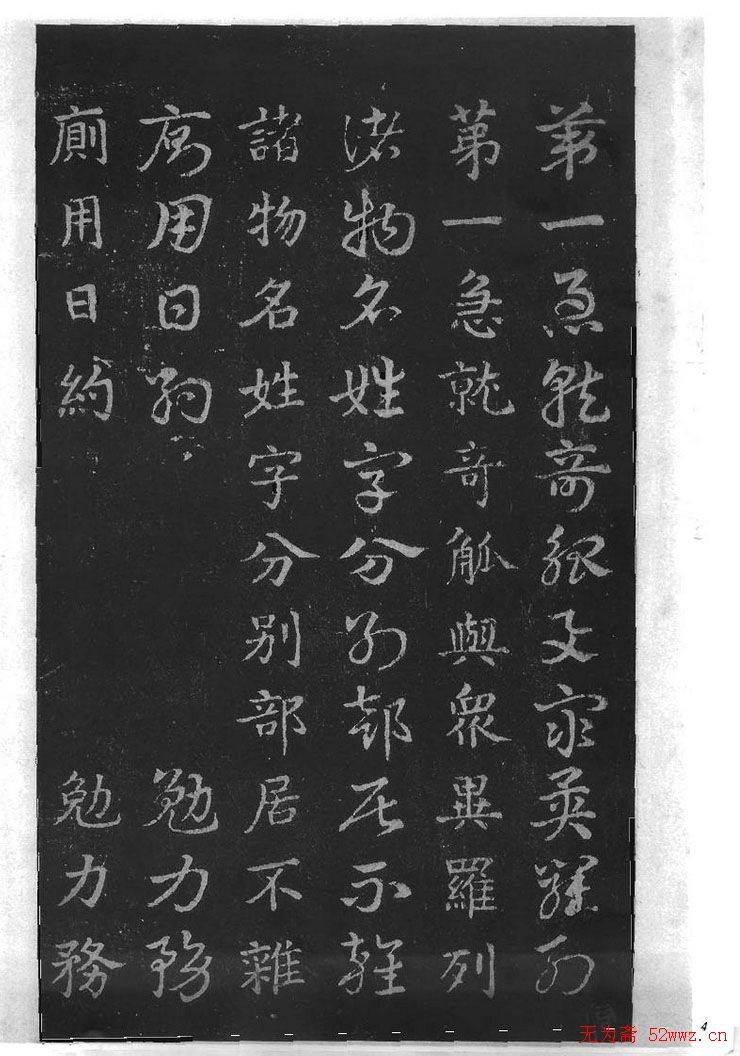 第一急就奇觚與眾異羅列
第一急就奇觚與眾異羅列
諸物名姓字分別部居不雜
諸物名姓字分別部居不雜
廁用日約 勉力務
廁用日約 勉力務
4
无为斋 52wwz.cn